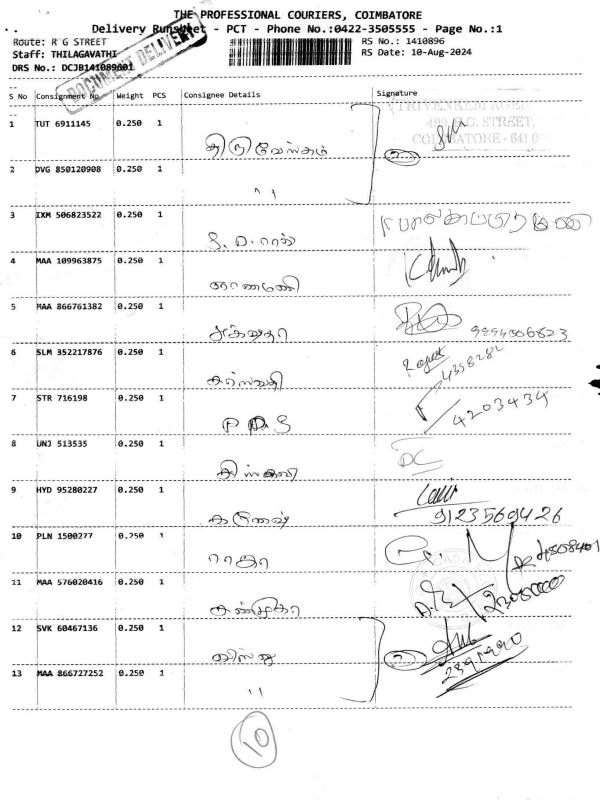 THE PROFESSIONAL COURIERS, COIMBATORE
Delivery Runsheet - PCT - Phone No.:0422-3505555 - Page No.:1
Route: R G STREET
RS No.: 1410896
Staff: THILAGAVATHI
RS Date: 10-Aug-2024
DRS No.: DCJB141089601
DOCUMENT DELIVERY
S No Consignment No Weight PCS Consignee Details Signature
TRIVENKEM
STREET,
COIMBATORE - 641
1 TUT 6911145 0.250 1
2 DVG 850120908 0.250 1 ''
3 IXM 506823522 0.250 1
4 MAA 109963875 0.250 1 ஞானமணி
5 MAA 866761382 0.250 1 9294506823
6 SLM 352217876 0.250 1 4358282
7 STR 716198 0.250 1 4203434
8 UNJ 513535 0.250 1
9 HYD 95280227 0.250 1 கணேஷ் 9123569426
10 PLN 1500277 0.250 1 ராஜா
11 MAA 576020416 0.250 1
12 SVK 60467136 0.250 1 2
13 MAA 866727252 0.250 1 ''
10